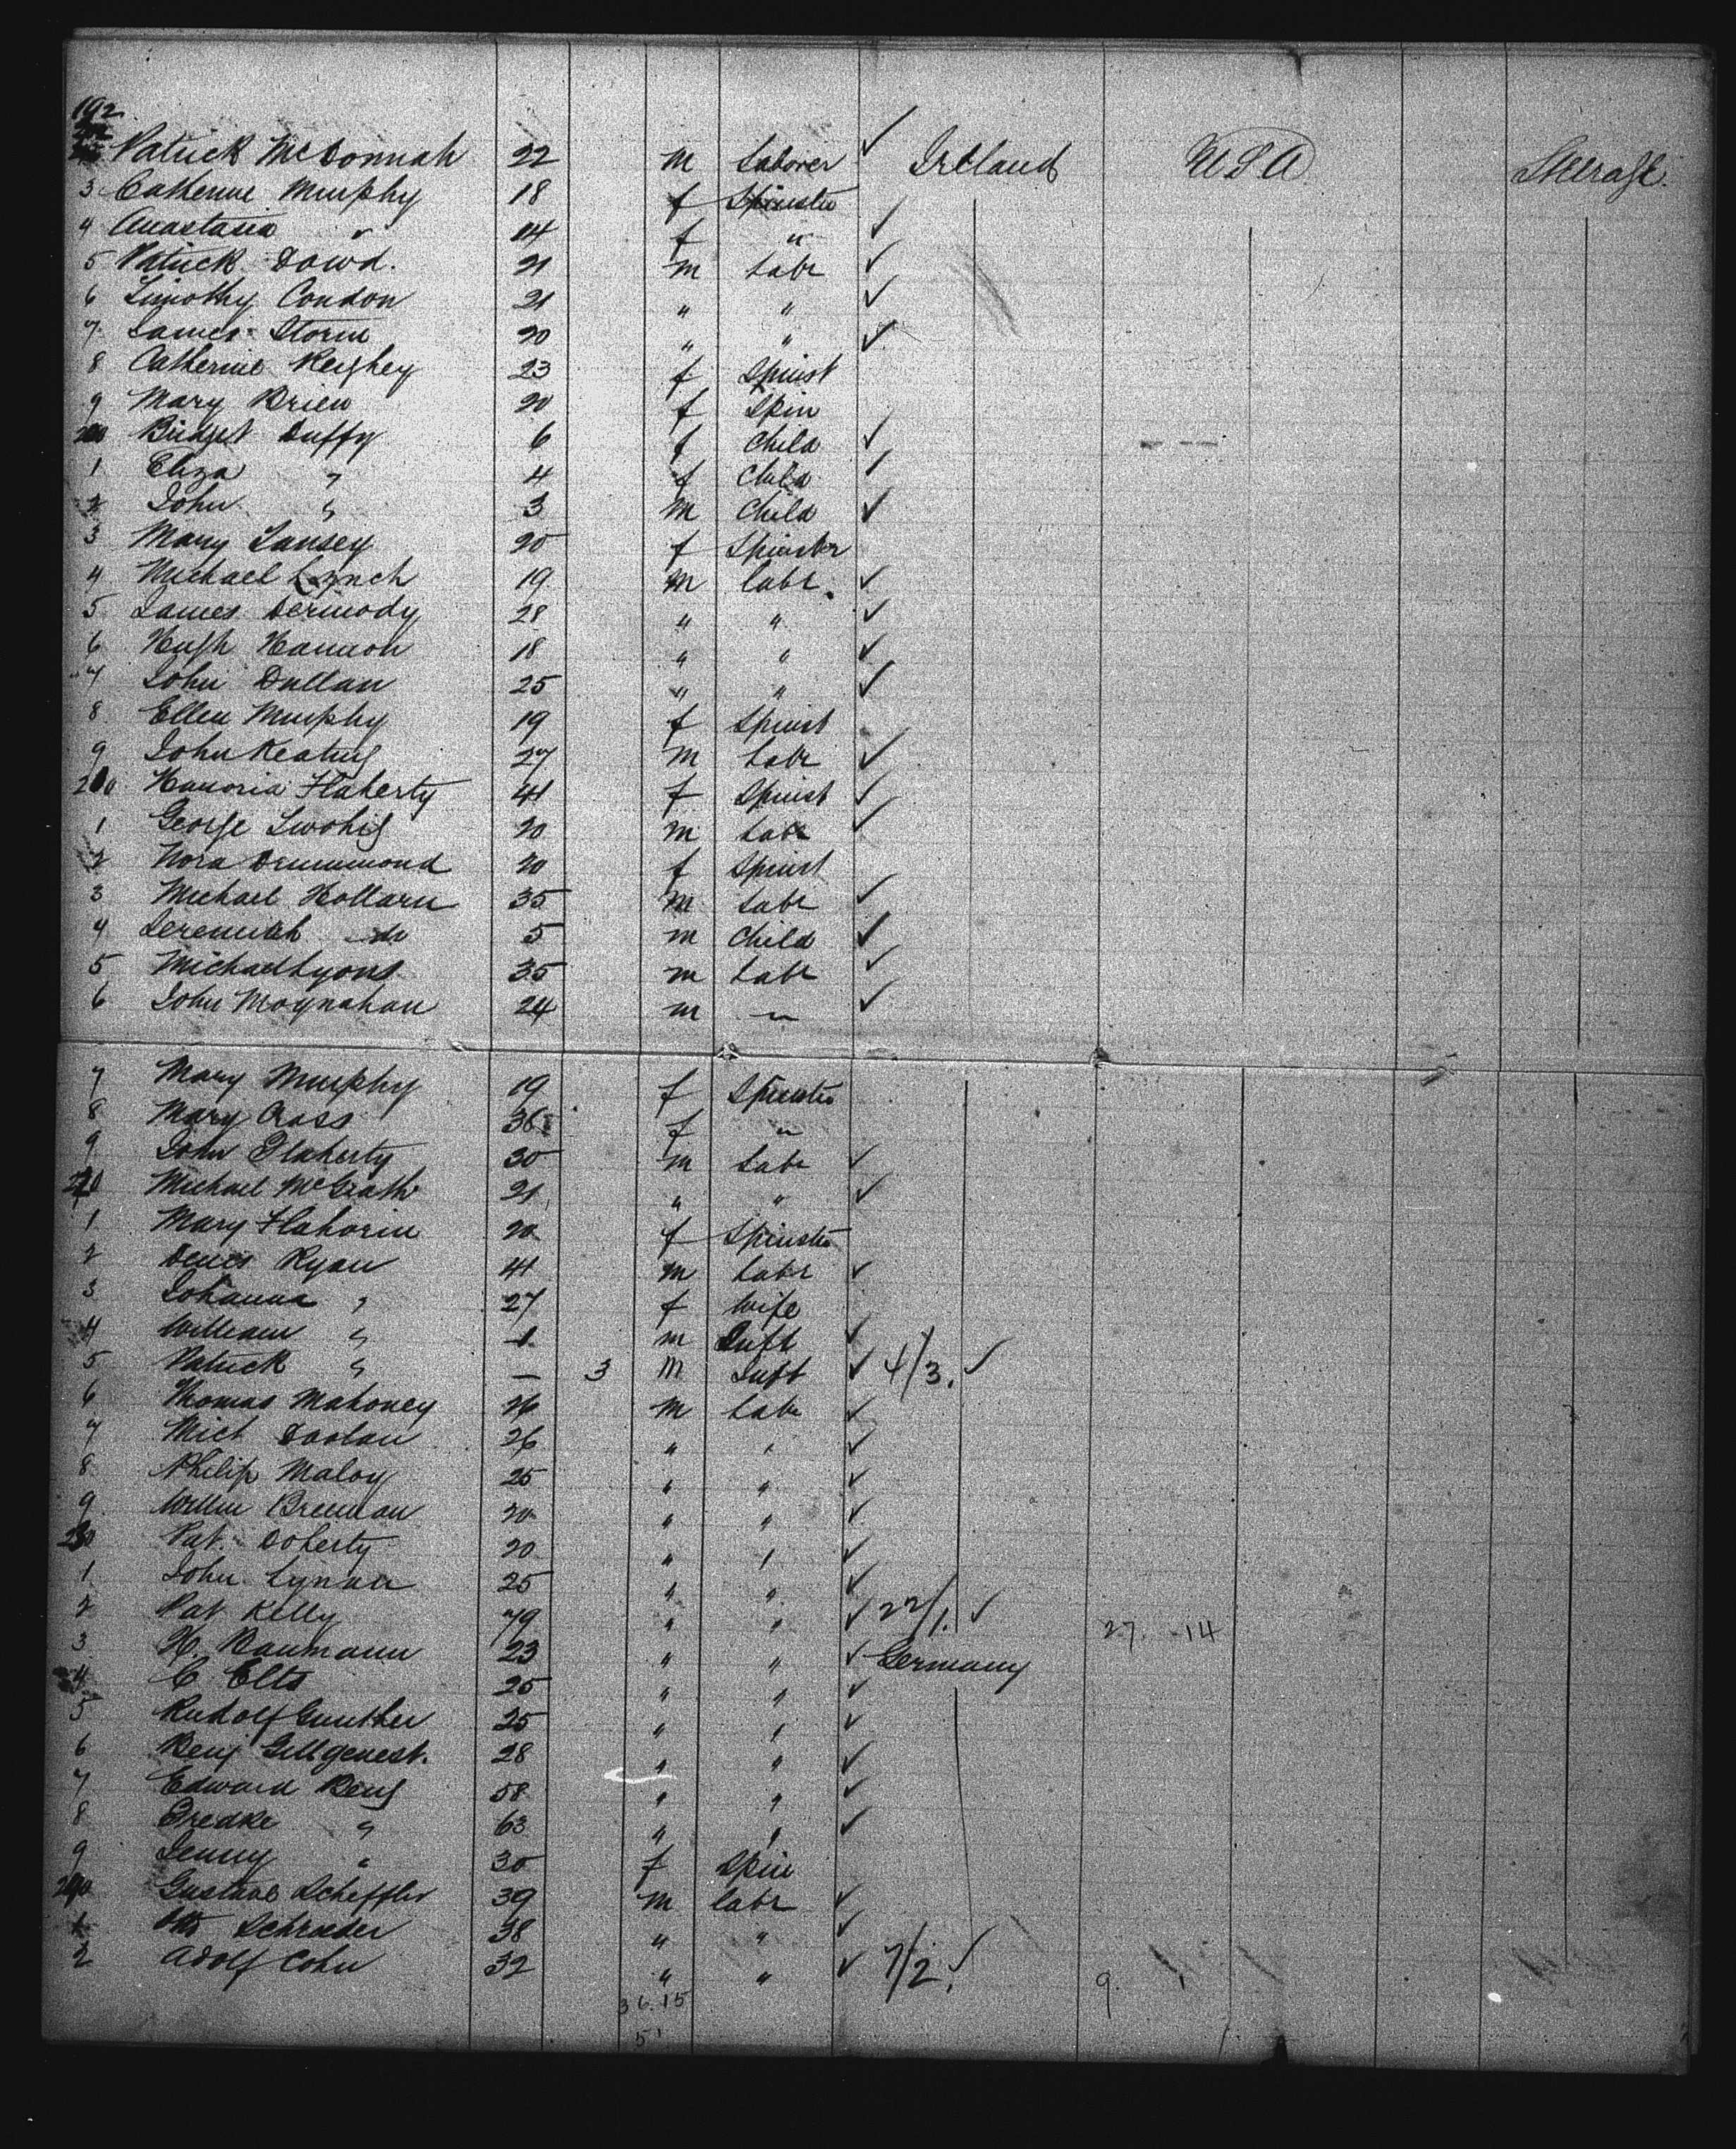 192
Patrick McDonnah 22 m Laborer ✓ Ireland USA Steerage.
3 Catherine Murphy 18 f Spinster
4 Anastasia " 14 f " ✓
5 Patrick Dowd. 21 m Labr ✓
6 Timothy Condon 21 " " ✓
7 James Storm 20 " " ✓
8 Catherine Keighey 23 f Spinst
9 Mary Brien 20 f Spin
200 Bridget Duffy 6 f Child ✓
1 Eliza " 4 f Child ✓
2 John " 3 m Child ✓
3 Mary Tansey 20 f Spinstr
4 Michael Lynch 19 m labr. ✓
5 James Dermody 28 " " ✓
6 Hugh Hannon 18 " " ✓
7 John Dullan 25 " " ✓
8 Ellen Murphy 19 f Spinst
9 John Keating 27 m Labr ✓
210 Hanoria Flaherty 41 f Spinst ✓
1 George Twohig 20 m Labr ✓
2 Nora Drummond 20 f Spinst
3 Michael Hollarn 35 m Labr ✓
4 Jeremiah do 5 m Child ✓
5 Michael Lyons 35 m Labr ✓
6 John Moynahan 24 m " ✓
7 Mary Murphy 19 f Spinster
8 Mary Cross 36 f "
9 John Flaherty 30 m Labr ✓
Michael McGrath 21 " " ✓
1 Mary Flahorin 20 f Spinster
2 Denis Ryan 41 m Labr ✓
3 Johanna " 27 f Wife
4 William " 1 m Inft ✓
5 Patrick " — 3 m Inft ✓ 4/3. ✓
6 Thomas Mahoney 26 m Labr ✓
7 Mich Doolan 26 " " ✓
8 Philip Maloy 25 " " ✓
9 Willm Brennan 20 " " ✓
230 Pat. Doherty 20 " " ✓
1 John Lynan 25 " " ✓
2 Pat Kelly 79 " " ✓ 22/1. ✓ 27. 14
3 H. Baumann 23 " " ✓ Germany
4 C Elts 25 " " ✓
5 Rudolf Gunther 25 " " ✓
6 Benj Gillgenest. 28 " " ✓
7 Edward Benj 58 " " ✓
8 Fredke " 63 " " ✓
9 Jenny " 30 f Spin
240 Gustave Scheffler 39 m labr ✓
1 Otto Schrader 38 " " ✓
2 Adolf Cohn 32 " " ✓ 7/2. ✓ 9.
36.15
51